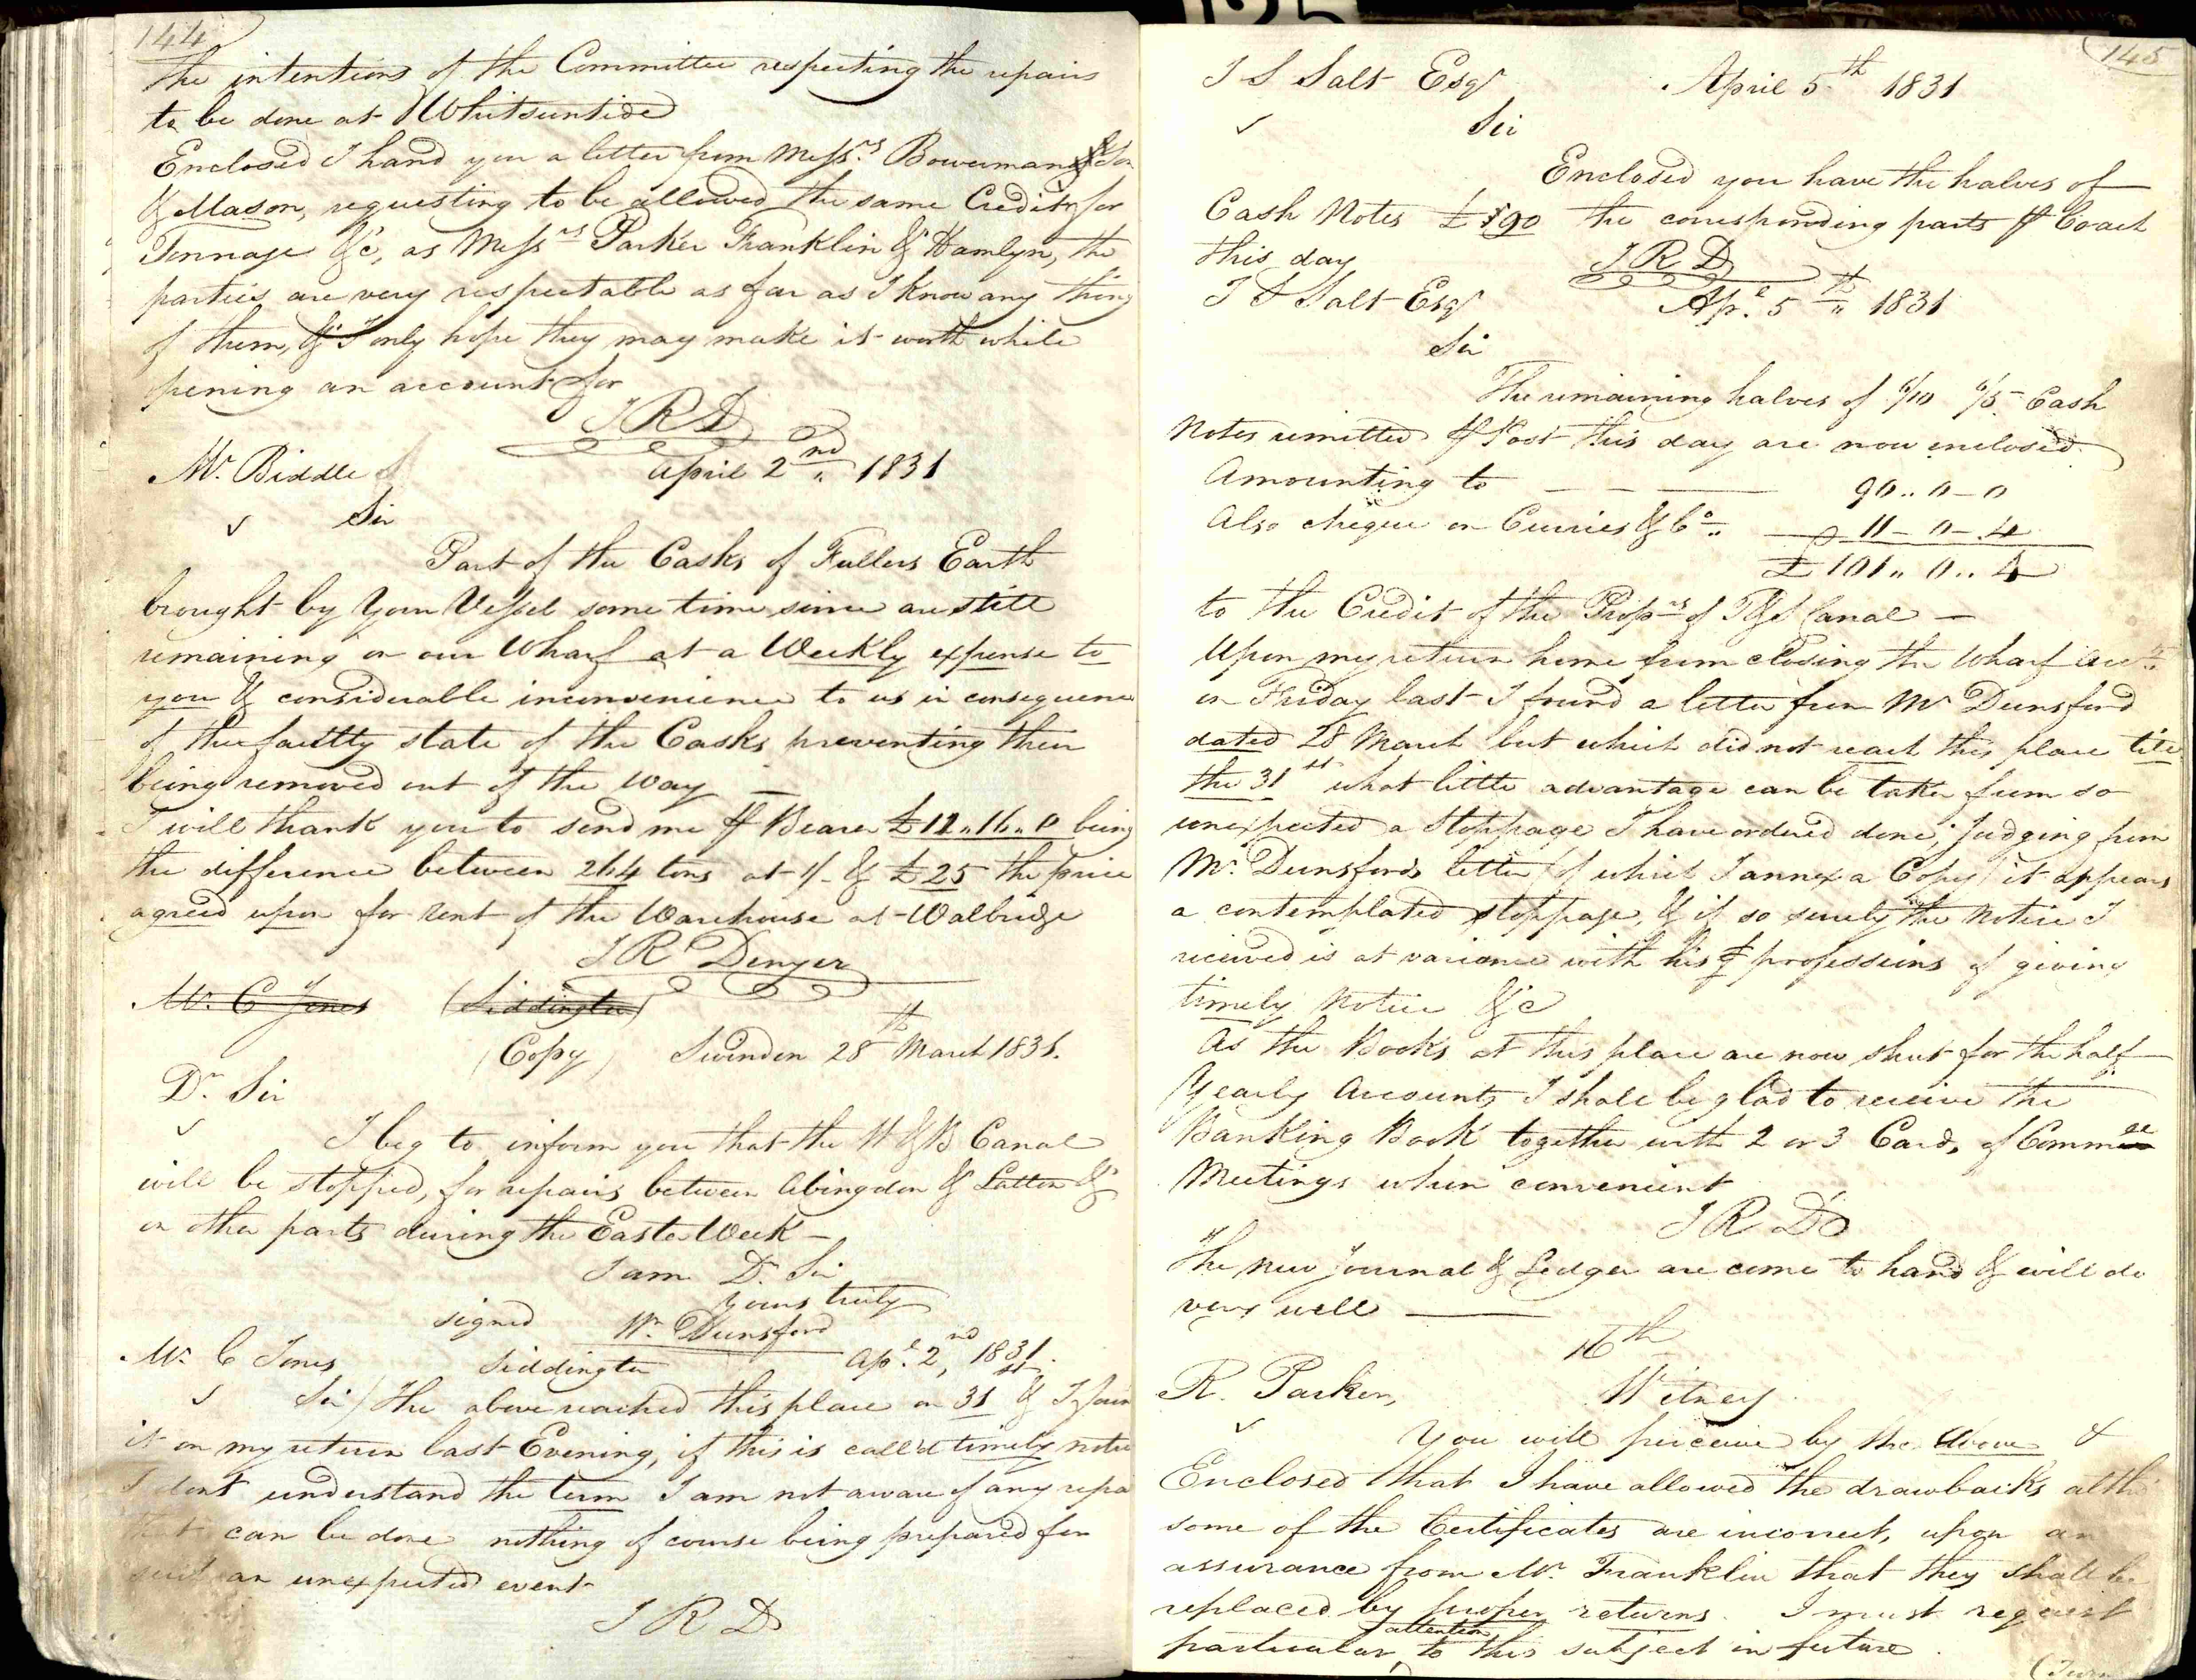 144
The intentions of the Committee respecting the repairs
to be done at Whitsuntide
Enclosed I hand you a letter from Messrs. Bowerman & Son
& Mason, requesting to be allowed the same Credit for
Tonnage &c, as Messrs Parker Franklin & Hamlyn, the
parties are very respectable as far as I know any thing
of them, & I only hope they may make it worth while
opening an account for
J R D
Mr. Biddle April 2nd 1831
Sir
Part of the Casks of Fullers Earth
brought by Your Vessel some time since are still
remaining on our Wharf at a Weekly expense to
you & considerable inconvenience to us in consequence
of the faultty state of the Casks preventing their
being removed out of the Way —
I will thank you to send me ⅌ Bearer £11.16.0 being
the difference between 264 tons at 1/- & £25 the price
agreed upon for rent of the Warehouse at Walbridge
J R Denyer
Mr. C Jones (Siddington)
(Copy) Swindon 28th March 1831.
Dr. Sir
I beg to inform you that the W & B Canal
will be stopped, for repairs between Abingdon & Latton &
on other parts during the Easter Week —
I am Dr. Sir
Yours truly
signed Wm. Dunsford
Mr. C Jones Siddington Apl. 2nd, 1831.
Sir / The above reached this place on 31st & I found
it on my return last Evening, if this is call'd timely notice
I dont understand the term I am not aware of any repairs
that can be done nothing of course being prepared for
such an unexpected event
J R D
145
J S Salt Esqr April 5th 1831
Sir
Enclosed you have the halves of
Cash Notes £90 the corresponding parts ⅌ Coach
this day J R D
J S Salt Esqr Apl. 5th 1831
Sir
The remaining halves of 6/10 6/5 Cash
Notes remitted ⅌ Post this day are now enclosed
Amounting to — — — 90..0-0
Also cheque on Curries & Co. — 11-0-4
£101..0..4
to the Credit of the Proprs of T&S Canal —
Upon my return home from closing the Wharf Accts.
on Friday last I found a letter from Mr Dunsford
dated 28 March but which did not reach this place till
the 31st what little advantage can be taken from so
unexpected a Stoppage I have ordered done; judging from
Mr. Dunsfords letter (of which I annex a Copy) it appears
a contemplated stoppage, & if so surely the Notice I
received is at variance with his professions of giving
timely Notice &c
As the Books at this place are now shut for the half
Yearly Accounts I shall be glad to receive the
Banking Book together with 2 or 3 Cards of Commee
Meetings when convenient
J R D
The New Journal & Ledger are come to hand & will do
very well —
16th
R. Parker, Witney.
You will perceive by the above &
Enclosed that I have allowed the drawbacks altho
some of the Certificates are incorrect, upon an
assurance from Mr. Franklin that they shall be
replaced by proper returns. I must request
particular attention to this subject in future.
(Turn